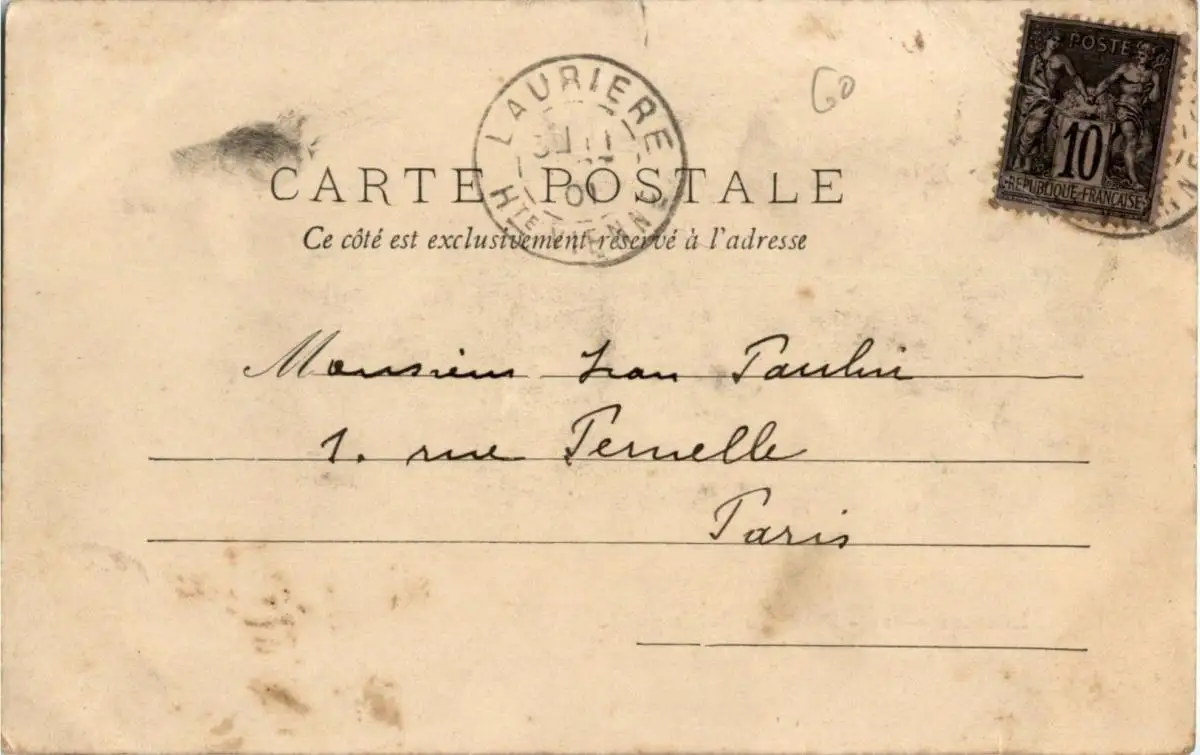 LAURIERE
Hte VIENNE
60
POSTE
10
REPUBLIQUE FRANCAISE
CARTE POSTALE
Ce côté est exclusivement réservé à l'adresse
Monsieur Jean Paulin
1. rue Pernelle
Paris